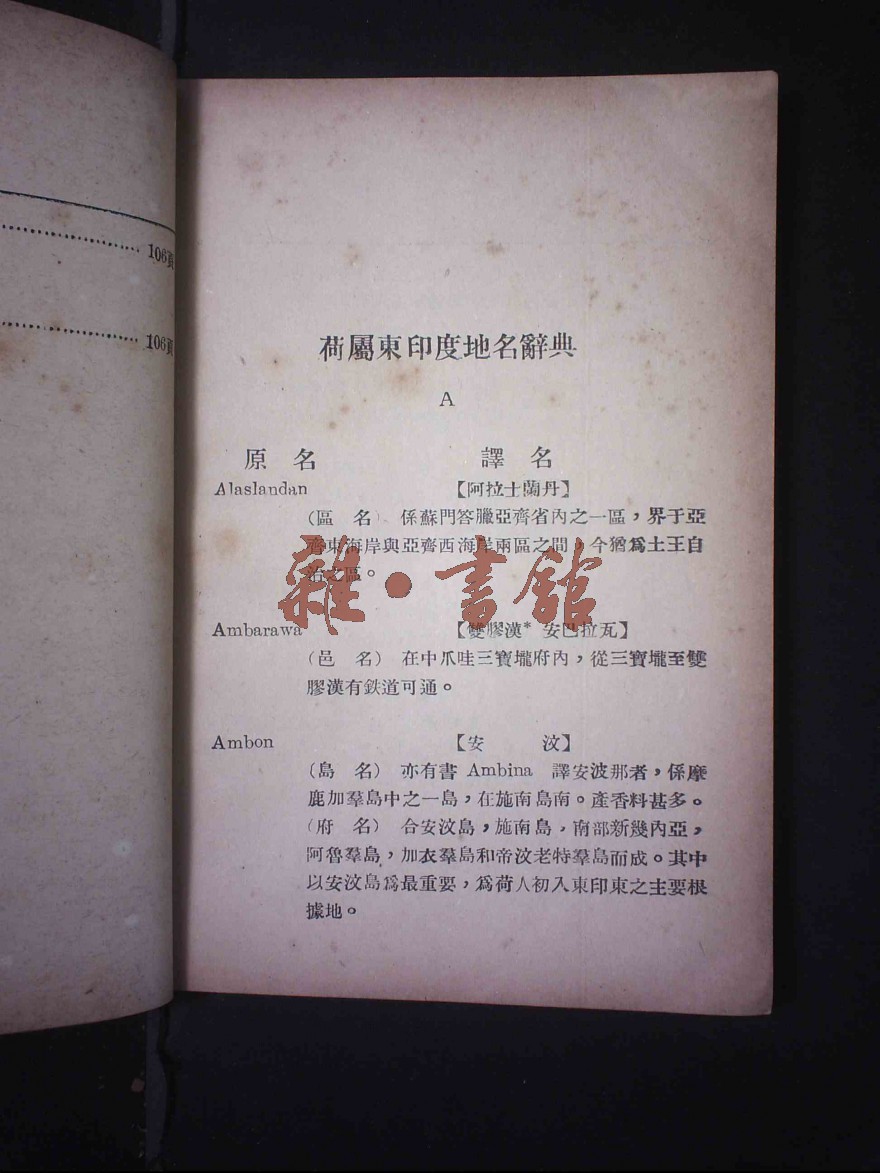 106頁
106頁
荷屬東印度地名辭典
A
原 名 譯 名
Alaslandan 【阿拉士蘭丹】
(區 名) 係蘇門答臘亞齊省內之一區，界于亞
齊東海岸與亞齊西海岸兩區之間，今猶爲土王自
治之區。
Ambarawa 【雙膠漢* 安巴拉瓦】
(邑 名) 在中爪哇三寶壠府內，從三寶壠至雙
膠漢有鉄道可通。
Ambon 【安 汶】
(島 名) 亦有書 Ambina 譯安波那者，係摩
鹿加羣島中之一島，在施南島南。產香料甚多。
(府 名) 合安汶島，施南島，南部新幾內亞，
阿魯羣島，加衣羣島和帝汶老特羣島而成。其中
以安汶島爲最重要，爲荷人初入東印東之主要根
據地。
雜·書館